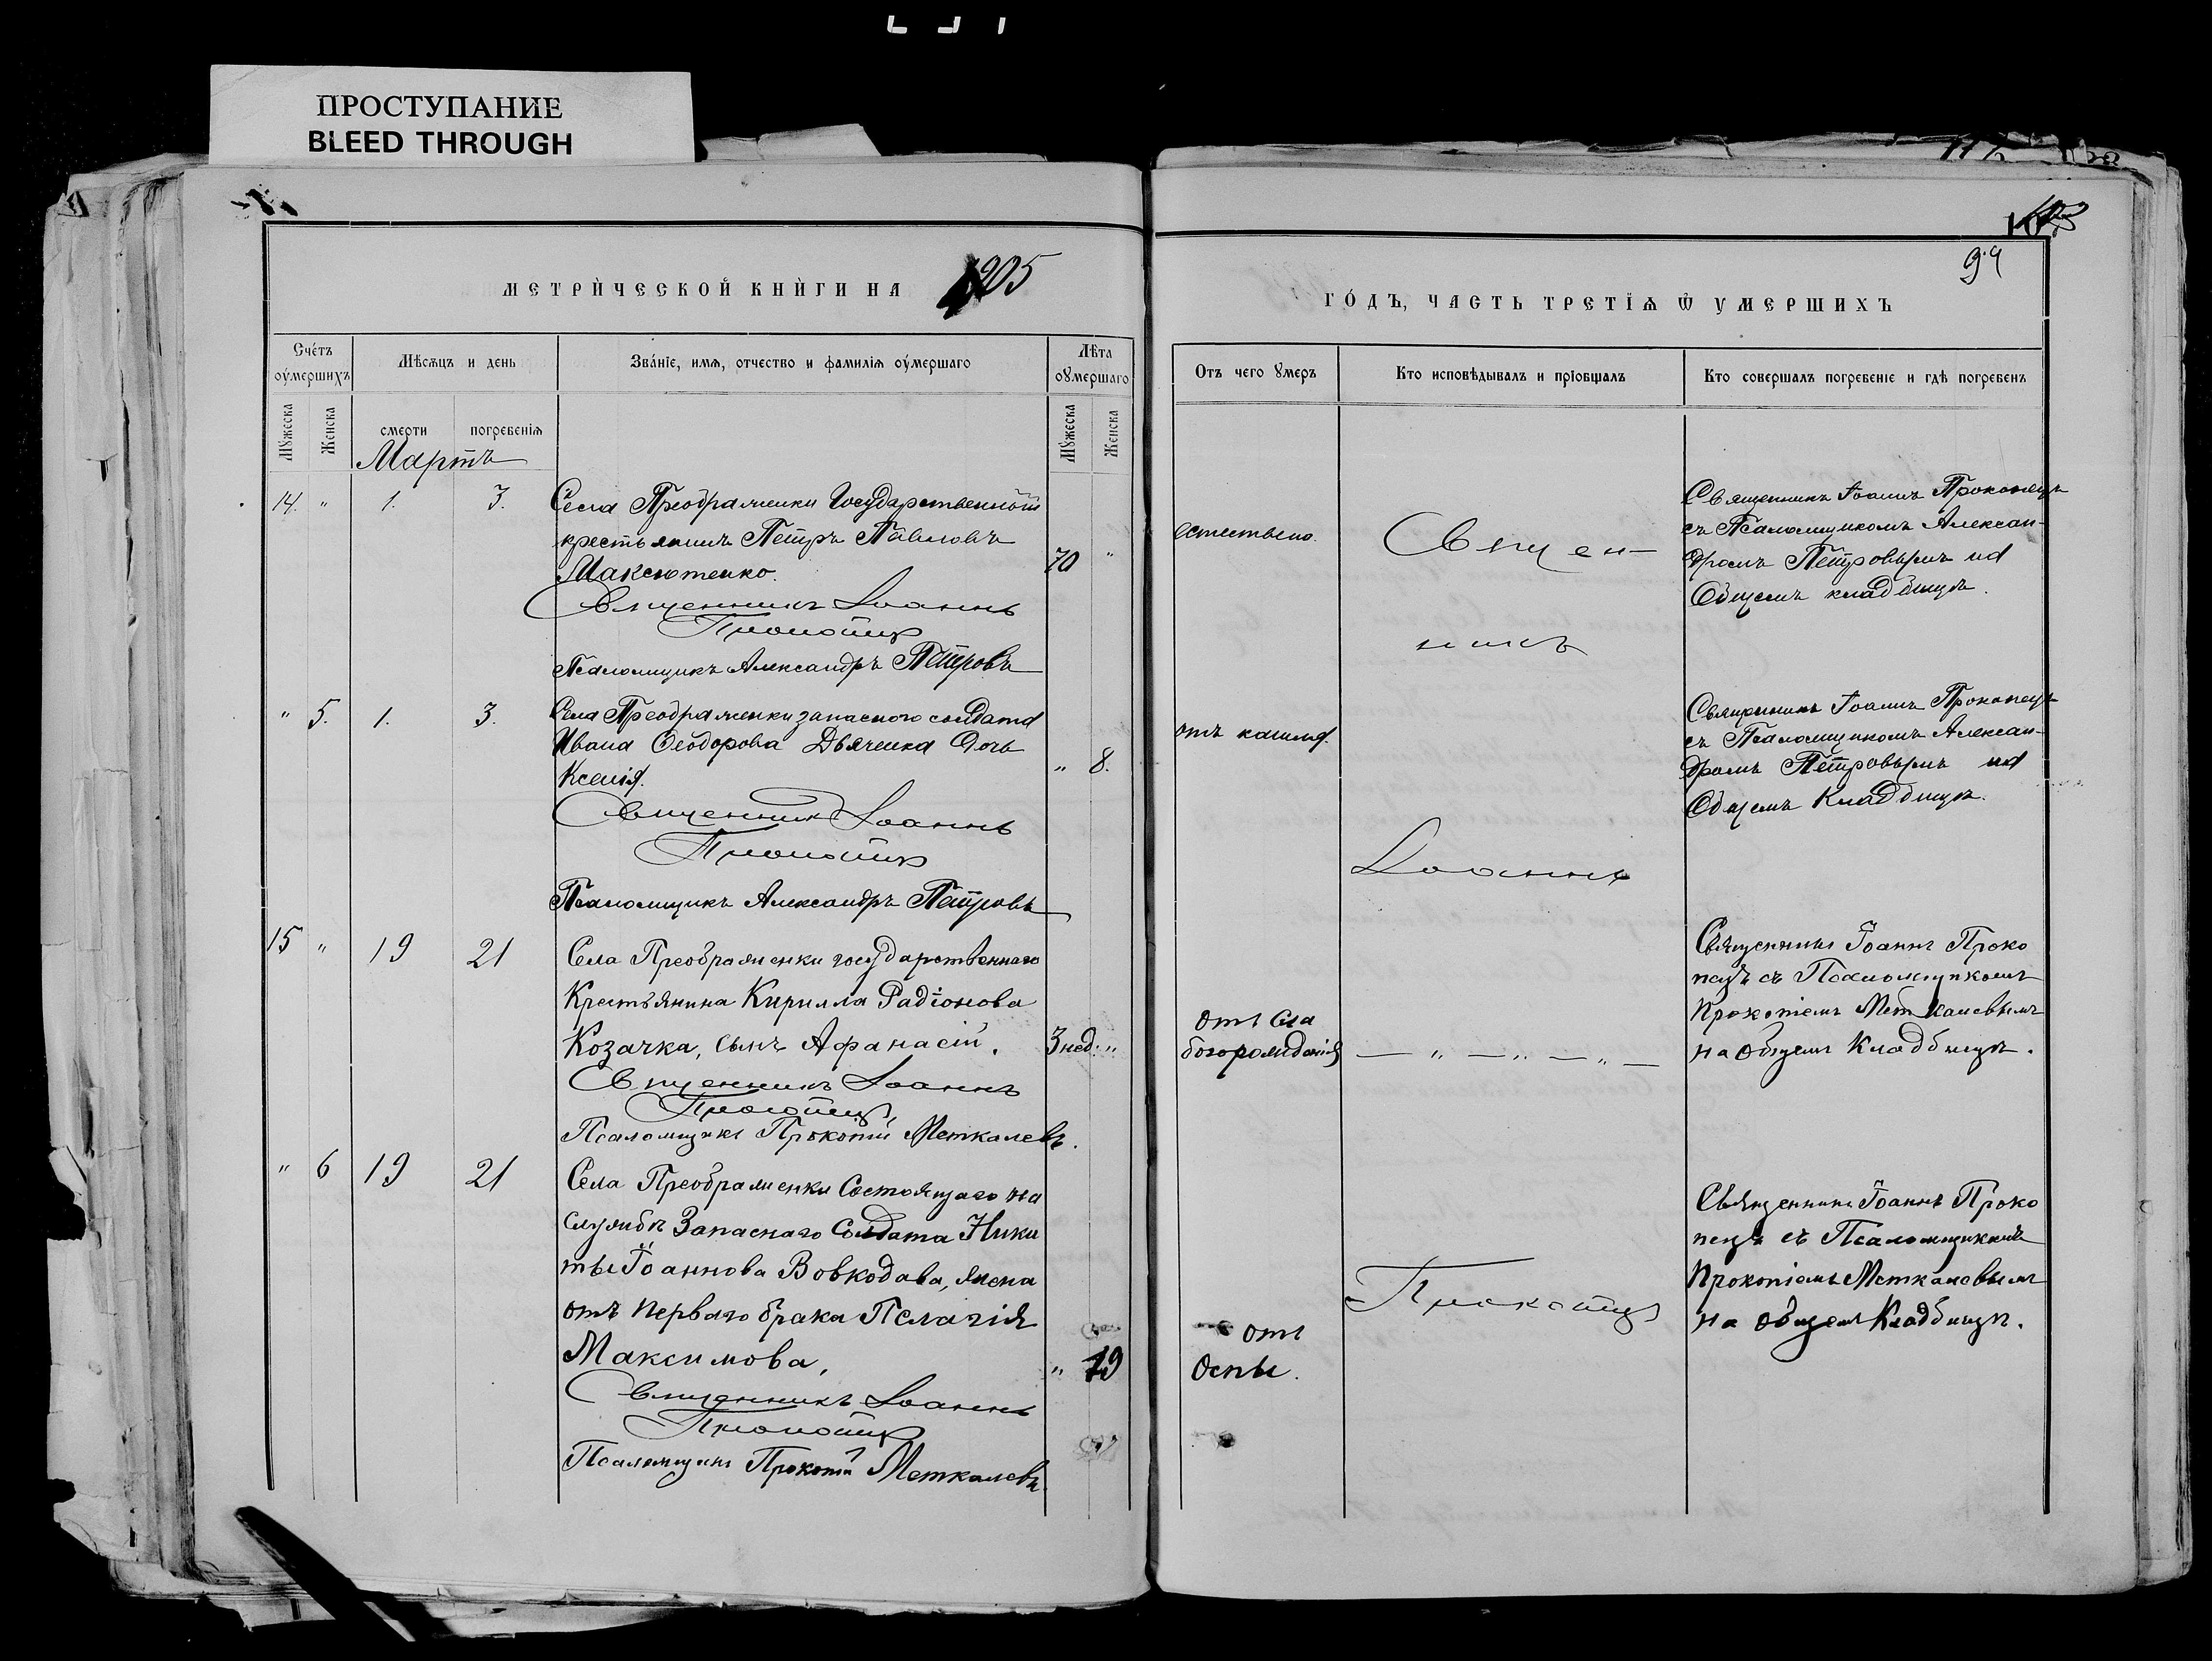 ПРОСТУПАНИЕ
BLEED THROUGH
МЕТРИЧЕСКОЙ КНИГИ НА 1905
Счетъ умершихъ
Мѣсяцъ и день
Званіе, имя, отчество и фамилія умершаго
Лѣта умершаго
Мужеска
Женска
смерти
погребенія
Мужеска
Женска
Мартъ
14. " 1. 3.
Села Преображенки Государственный
крестьянинъ Петръ Павловъ
Максютенко. 70 "
Священникъ Іоаннъ
Прокопецъ
Псаломщикъ Александръ Петровъ
" 5. 1. 3.
Села Преображенки запасного солдата
Ивана Ѳеодорова Дьяченка дочь
Ксенія. " 8.
Священникъ Іоаннъ
Прокопецъ
Псаломщикъ Александръ Петровъ
15 " 19 21
Села Преображенки государственнаго
Крестьянина Кирилла Радіонова
Козачка, сынъ Афанасій. 3 нед. "
Священникъ Іоаннъ
Прокопецъ
Псаломщикъ Прокопій Меткалевъ.
" 6 19 21
Села Преображенки Состоящаго на
службѣ Запаснаго Солдата Ники
ты Іоаннова Вовкодава, жена
отъ перваго брака Пелагія
Максимова, " 19
Священникъ Іоаннъ
Прокопецъ
Псаломщикъ Прокопій Меткалевъ
94
ГОДЪ, ЧАСТЬ ТРЕТІЯ Ѿ УМЕРШИХЪ
Отъ чего умеръ
Кто исповѣдывалъ и пріобщалъ
Кто совершалъ погребеніе и гдѣ погребенъ
естествено.
Священ-
никъ
Священникъ Іоаннъ Прокопецъ
съ Псаломщикомъ Алексан-
дромъ Петровымъ на
Общемъ кладбищѣ.
отъ кашля.
Іоаннъ
Священникъ Іоаннъ Прокопецъ
съ Псаломщикомъ Алексан-
дромъ Петровымъ на
Общемъ Кладбищѣ.
отъ Сла
богорожденія
— " — " — " —
Священникъ Іоаннъ Проко
пецъ съ Псаломщикомъ
Прокопіемъ Меткалевымъ
на общемъ Кладбищѣ.
отъ
Оспы.
Прокопецъ
Священникъ Іоаннъ Проко
пецъ съ Псаломщикомъ
Прокопіемъ Меткалевымъ
на общемъ Кладбищѣ.